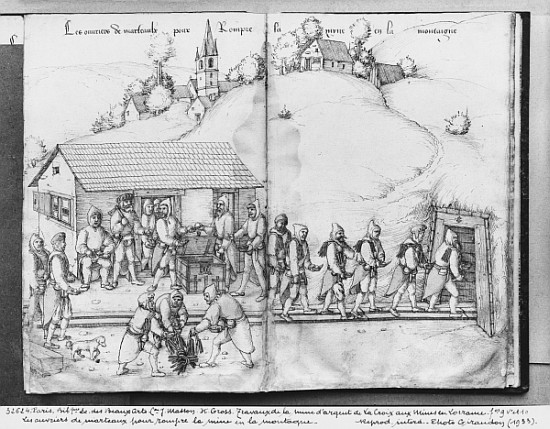 Les ouvriers de marteaulx pour Rompre la myne en la montaigne
32624. Paris, Bibl. Ec. des Beaux Arts (Con J. Masson. H. Gross. Travaux de la mine d'argent de la Croix aux Mines en Lorraine.
Les ouvriers de marteaux pour rompre la mine en la montagne. Reprod. interd. Photo Giraudon (1933).